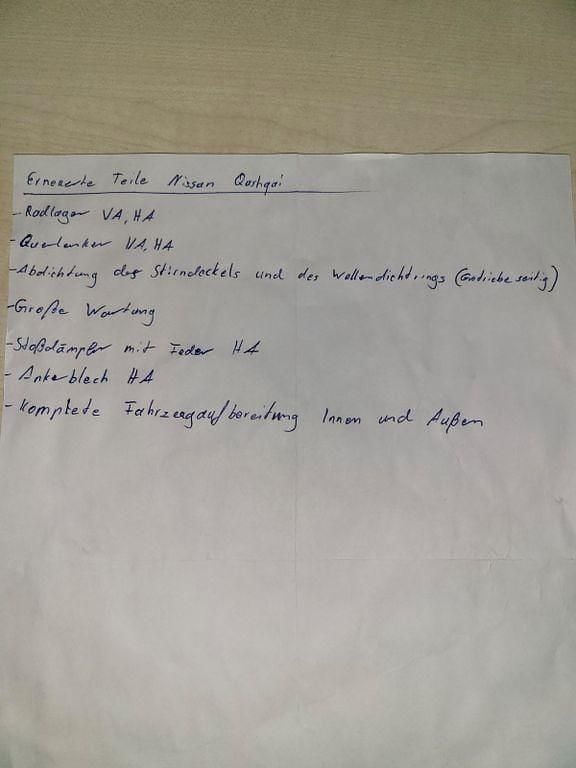 Erneuerte Teile Nissan Qashqai
- Radlager VA, HA
- Querlenker VA, HA
- Abdichtung des Stirndeckels und des Wellendichtrings (Getriebeseitig)
- Große Wartung
- Stoßdämpfer mit Feder HA
- Ankerblech HA
- Komplette Fahrzeugaufbereitung Innen und Außen